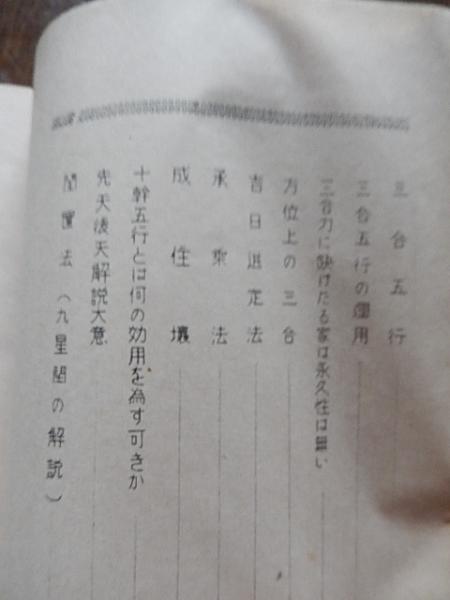 三合五行
三合五行の運用
三合力に缺けたる家は永久性は無い
方位上の三合
吉日選定法
承乗法
成住壊
十幹五行とは何の効用を為す可きか
先天後天解説大意
闇置法(九星闇の解説)